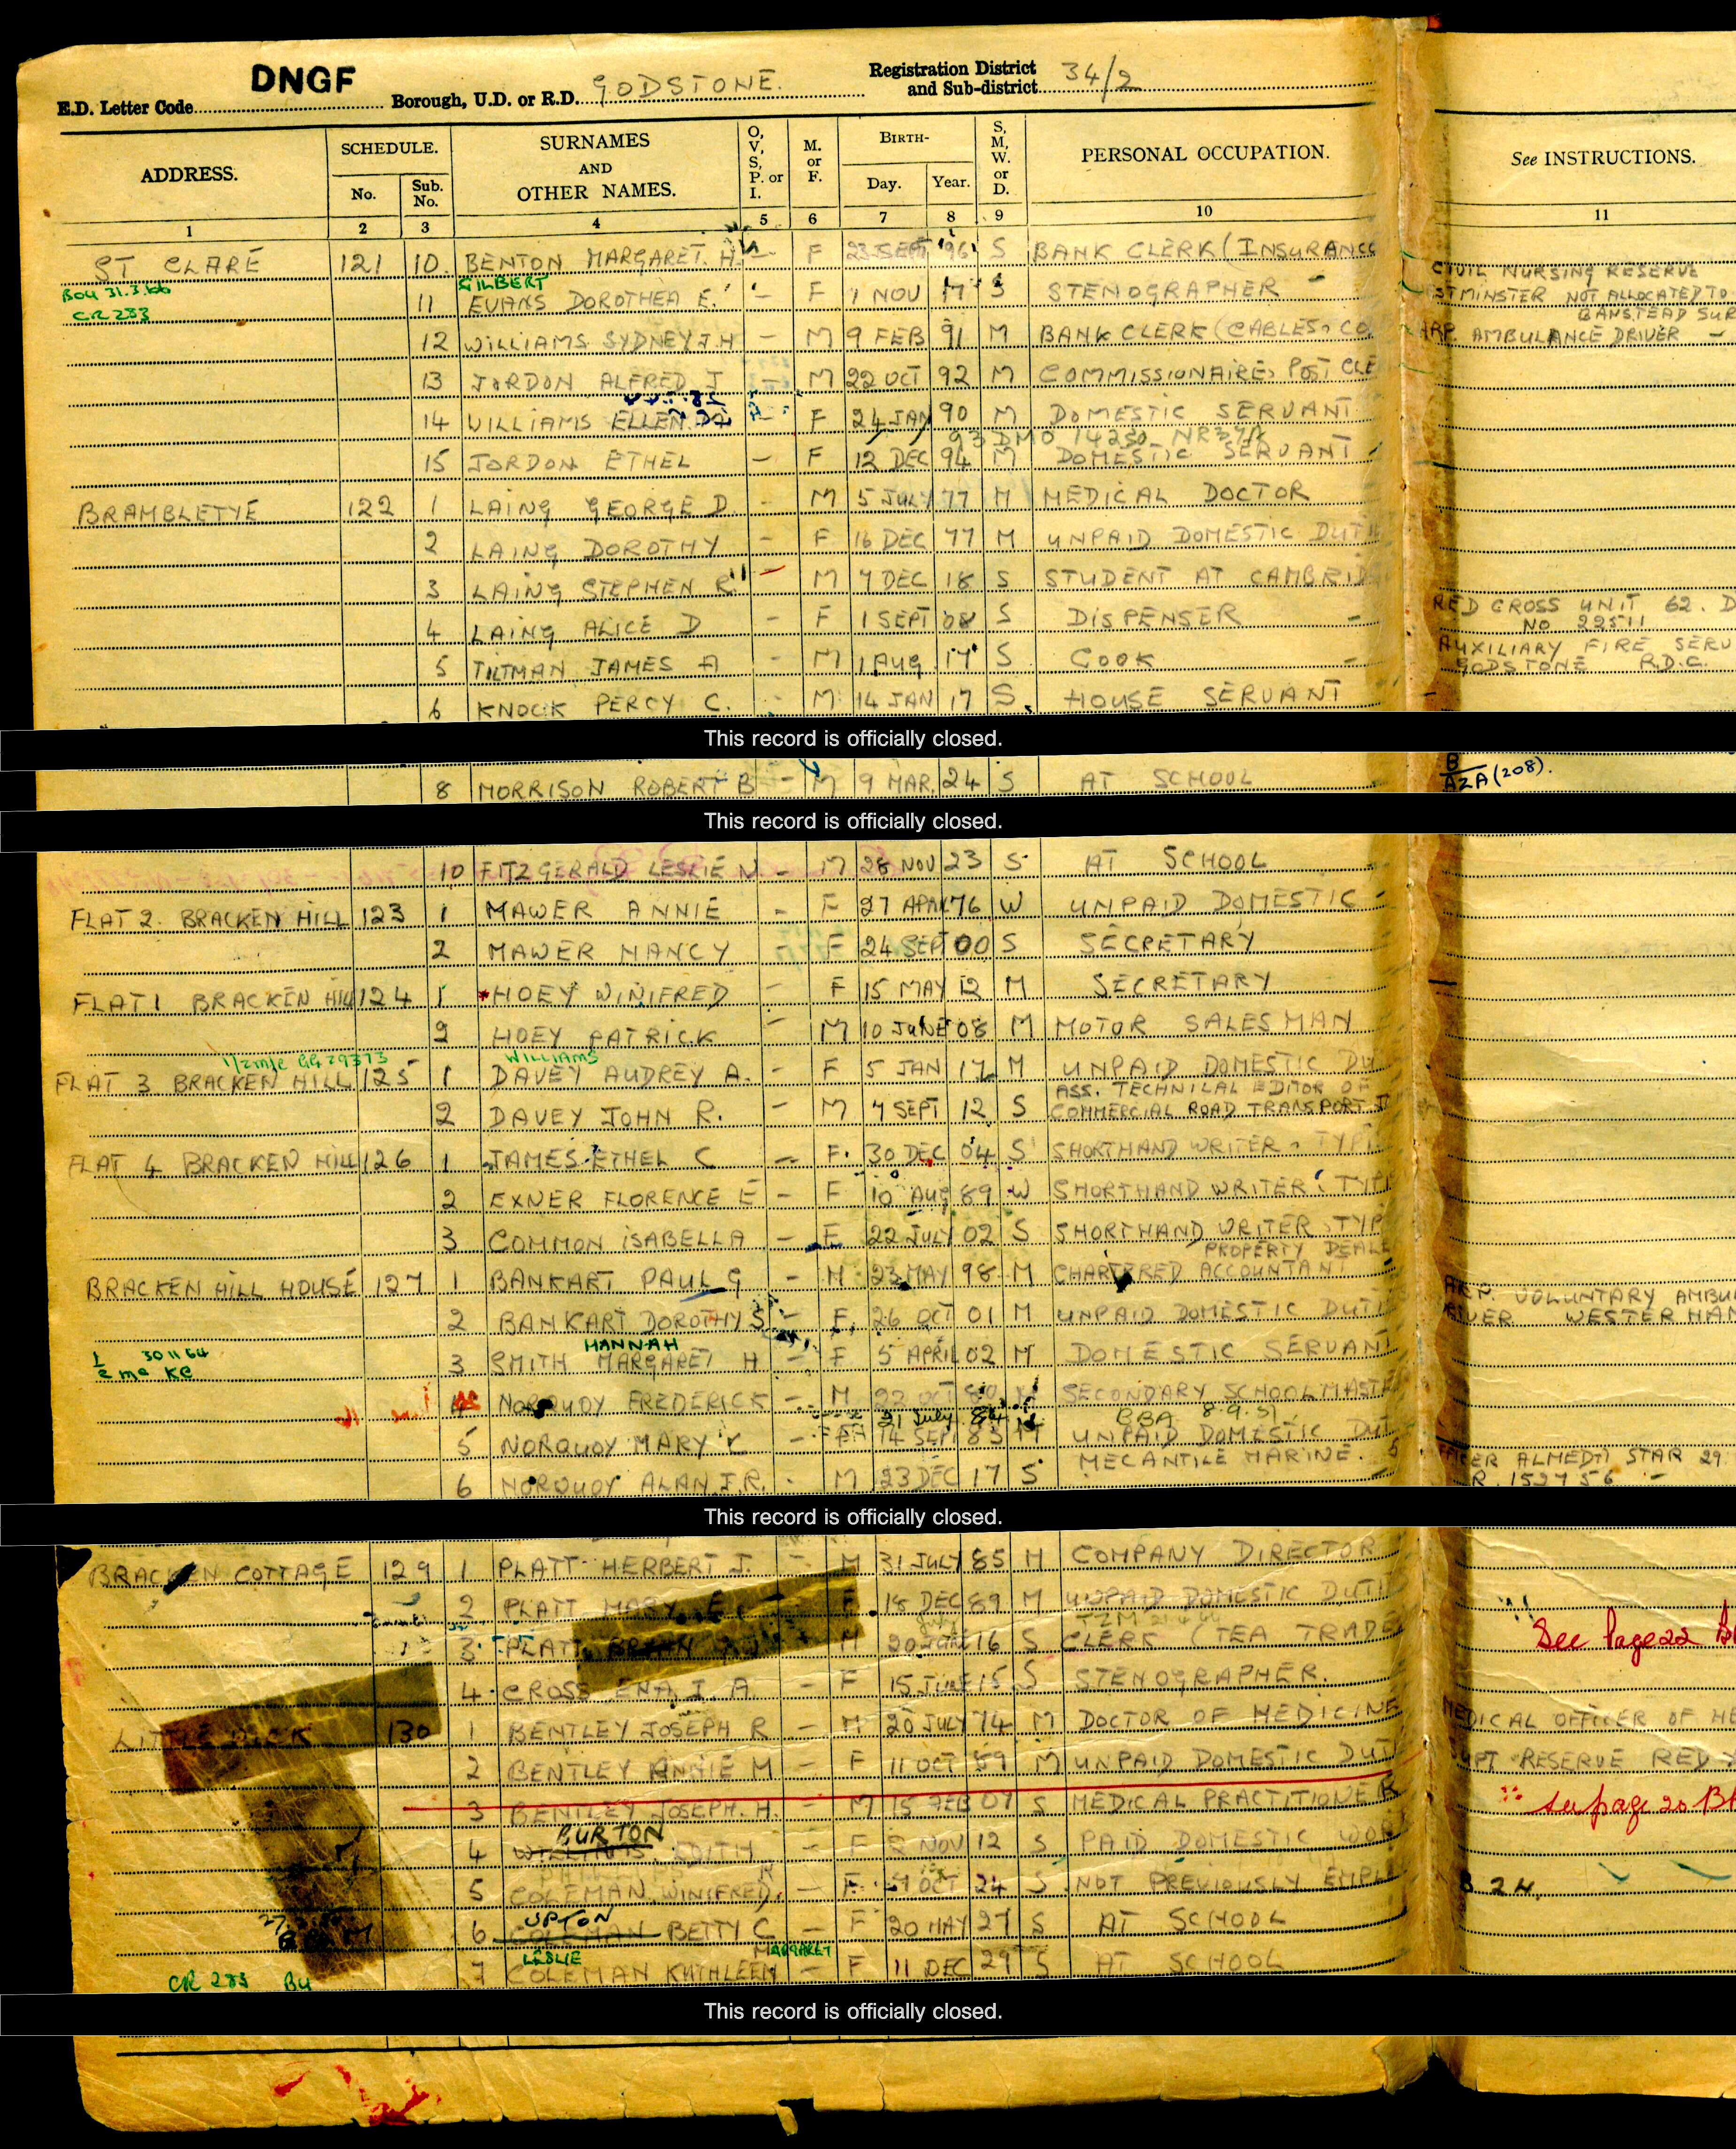 DNGF
E.D. Letter Code Borough, U.D. or R.D. GODSTONE. Registration District and Sub-district 34/2
ADDRESS. SCHEDULE. No. Sub. No. SURNAMES AND OTHER NAMES. O, V, S, P. or I. M. or F. BIRTH- Day. Year. S, M, W. or D. PERSONAL OCCUPATION. See INSTRUCTIONS.
1 2 3 4 5 6 7 8 9 10 11
ST CLARE 121 10. BENTON MARGARET. H. F 23 SEPT 96 S BANK CLERK (INSURANCE
CIVIL NURSING RESERVE
GILBERT
11 EVANS DOROTHEA E. - F 7 NOV 17 S STENOGRAPHER -
STMINSTER NOT ALLOCATED TO
BANSTEAD SUR
CR 283
12 WILLIAMS SYDNEY J.H - M 9 FEB 91 M BANK CLERK (CABLES, CO. ARP. AMBULANCE DRIVER -
13 JORDON ALFRED J - M 22 OCT 92 M COMMISSIONAIRE, POST CLE
14 WILLIAMS ELLEN F 24 JAN 90 M DOMESTIC SERVANT
15 JORDON ETHEL - F 12 DEC 94 M DOMESTIC SERVANT
BRAMBLETYE 122 1 LAING GEORGE D. - M 5 JULY 77 M MEDICAL DOCTOR
2 LAING DOROTHY - F 16 DEC 77 M UNPAID DOMESTIC DUTI
3 LAING STEPHEN R. - M 7 DEC 18 S STUDENT AT CAMBRID
4 LAING ALICE D - F 1 SEPT 08 S DISPENSER -
RED CROSS UNIT 62. D
NO 22511
5 TILTMAN JAMES A - M 1 AUG 17 S COOK -
AUXILIARY FIRE SERV
GODSTONE R.D.C.
6 KNOCK PERCY C. M 14 JAN 17 S. HOUSE SERVANT
This record is officially closed.
8 MORRISON ROBERT B - M 9 MAR. 24 S AT SCHOOL
B
AZA (208).
This record is officially closed.
10 FITZGERALD LESLIE N - M 28 NOV 23 S AT SCHOOL
FLAT 2. BRACKEN HILL 123 1 MAWER ANNIE - F 27 APRIL 76 W UNPAID DOMESTIC -
2 MAWER NANCY - F 24 SEPT 00 S SECRETARY
FLAT 1 BRACKEN HILL 124 1 HOEY WINIFRED - F 15 MAY 12 M SECRETARY
2 HOEY PATRICK - M 10 JUNE 08 M MOTOR SALESMAN
WILLIAMS
FLAT 3 BRACKEN HILL 125 1 DAVEY AUDREY A. - F 5 JAN 17 M UNPAID DOMESTIC DU
ASS. TECHNILAL EDITOR OF
2 DAVEY JOHN R. - M 7 SEPT 12 S COMMERCIAL ROAD TRANSPORT J
FLAT 4 BRACKEN HILL 126 1 JAMES ETHEL C - F. 30 DEC 04 S SHORTHAND WRITER, TYPI
2 EXNER FLORENCE E - F 10 AUG 89 W SHORTHAND WRITER, TYPI
3 COMMON ISABELLA - F 22 JULY 02 S SHORTHAND WRITER TYP
PROPERTY DEALE
BRACKEN HILL HOUSE 127 1 BANKART PAUL G - M 23 MAY 98 M CHARTERED ACCOUNTANT
ARP. VOLUNTARY AMBU
2 BANKART DOROTHY S - F. 26 OCT 01 M UNPAID DOMESTIC DUTI
RIVER WESTERHAM
HANNAH
30 11 64
3 SMITH MARGARET H - F 5 APRIL 02 M DOMESTIC SERVANT
4 NORQUOY FREDERICK - M 22 OCT 80 M SECONDARY SCHOOLMASTE
21 July 84 BBA 8.9.51
5 NORQUOY MARY - F 14 SEPT 83 M UNPAID DOMESTIC DUT
MECANTILE MARINE.
6 NORQUOY ALAN J.R. - M 23 DEC 17 S
FFICER ALMEDA STAR 29.
R. 152756 -
This record is officially closed.
BRACKEN COTTAGE 129 1 PLATT HERBERT J. - M 31 JULY 85 M COMPANY DIRECTOR
2 PLATT MARY E. - F. 18 DEC 89 M UNPAID DOMESTIC DUTI
3 PLATT BRIAN M 20 JUNE 16 S CLERK (TEA TRADE
See Page 22
4 CROSS ENA I. A - F 15 JUNE 15 S STENOGRAPHER.
LITTLE 130 1 BENTLEY JOSEPH R - M 20 JULY 74 M DOCTOR OF MEDICINE
MEDICAL OFFICER OF HE
2 BENTLEY ANNIE M - F 11 OCT 89 M UNPAID DOMESTIC DUT
UPT RESERVE RED
3 BENTLEY JOSEPH. H. - M 15 FEB 07 S MEDICAL PRACTITIONER
See page 20
BURTON
4 EDITH - F NOV 12 S PAID DOMESTIC WOR
5 COLEMAN WINIFRED. - F. OCT 24 S NOT PREVIOUSLY EMPL
B 24.
UPTON
6 COLEMAN BETTY C - F 20 MAY 27 S AT SCHOOL
LESLIE MARGARET
7 COLEMAN KATHLEEN - F 11 DEC 29 S AT SCHOOL
CR 283 BU
This record is officially closed.